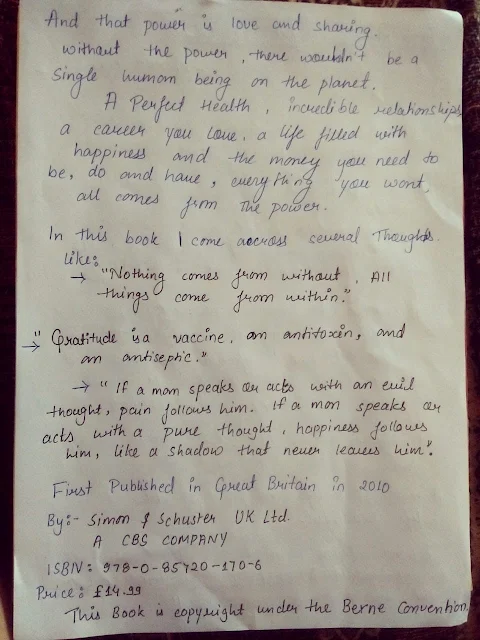 And that power is love and sharing.
without the power, there wouldn't be a
single human being on the planet.
A Perfect Health, incredible relationships,
a career you love, a life filled with
happiness and the money you need to
be, do and have, everything you want,
all comes from the power.
In this book I come accross several Thoughts.
like:
→ "Nothing comes from without. All
things come from within."
→ "Gratitude is a vaccine, an antitoxin, and
an antiseptic."
→ "If a man speaks or acts with an evil
thought, pain follows him. If a man speaks or
acts with a pure thought, happiness follows
him, like a shadow that never leaves him".
First Published in Great Britain in 2010
By:- Simon & Schuster UK Ltd.
A CBS COMPANY
ISBN: 978-0-85720-170-6
Price: £14.99
This Book is copyright under the Berne Convention.